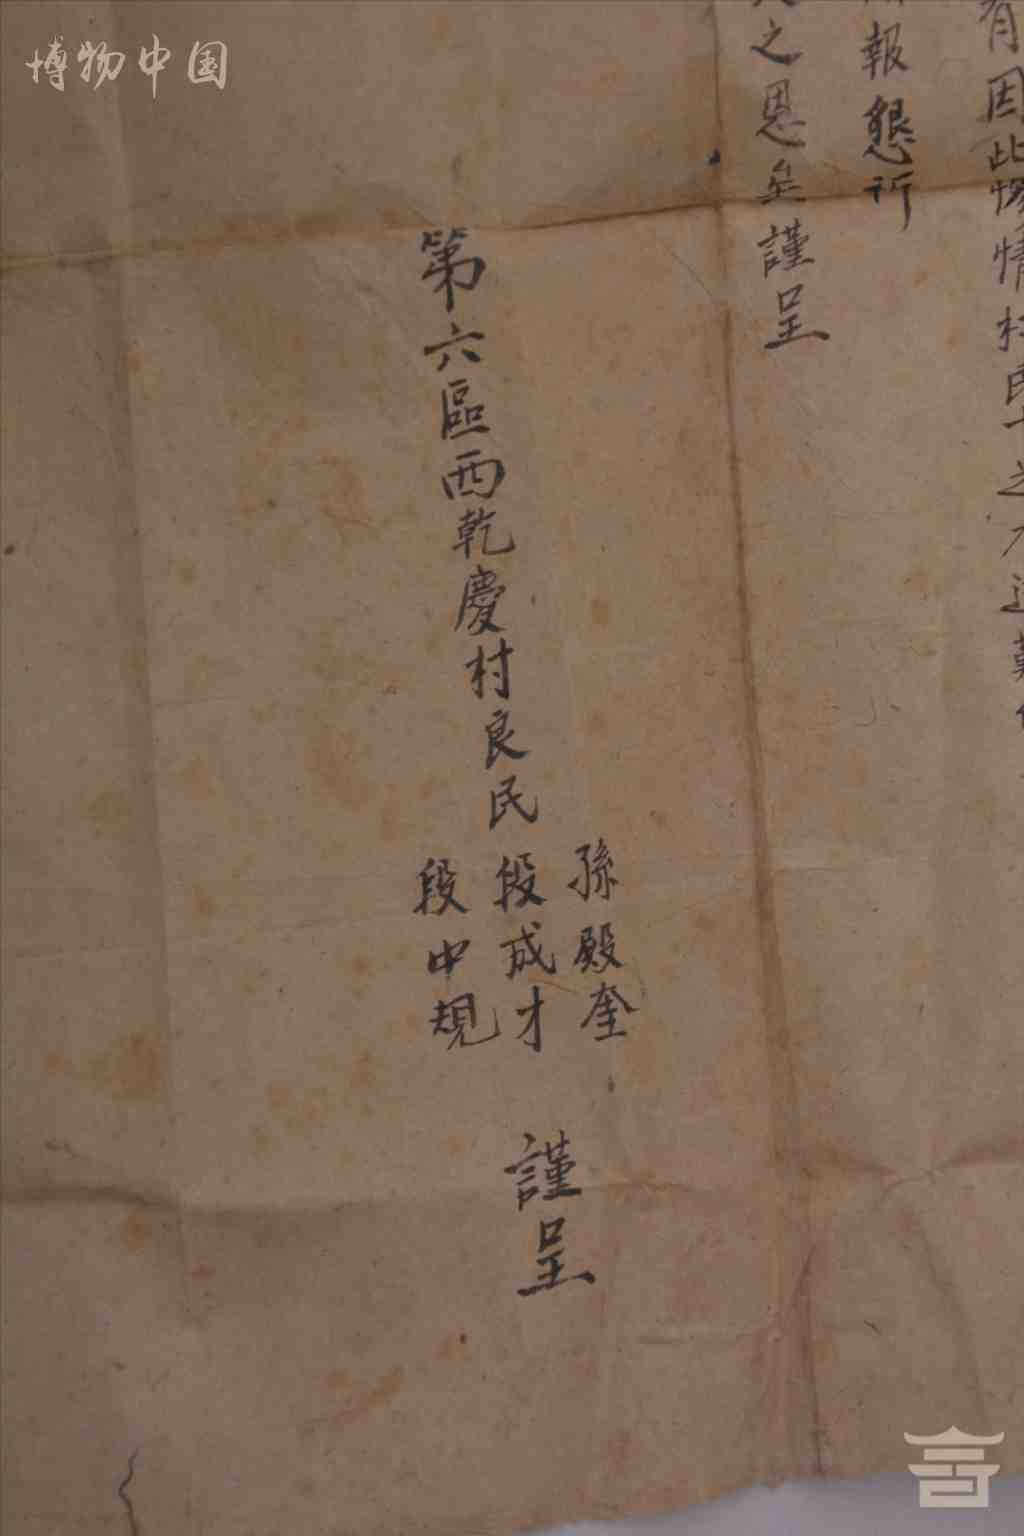 博物中国
有因此惨情村民
報懇祈
之恩矣謹呈
第六區西乾慶村良民
孫殿奎
段成才
段中規
謹呈